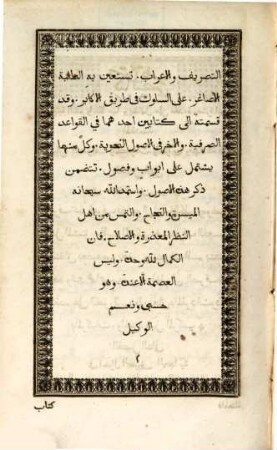 التصريف والاعراب. تستعين به الطلبة
الاصاغر. على السلوك في طريق الاكابر. وقد
قسمته الى كتابين احدهما في القواعد
الصرفية. والاخر في الاصول النحوية. وكل منهما
يشتمل على ابواب وفصول. تتضمن
ذكر هذه الاصول. واستمد الله سبحانه
الميسرة والنجاح. والتمس من اهل
النظر المعذرة والاصلاح. فان
الكمال لله وحده. وليس
العصمة الا عنده. وهو
حسبي ونعم
الوكيل
٢
كتاب